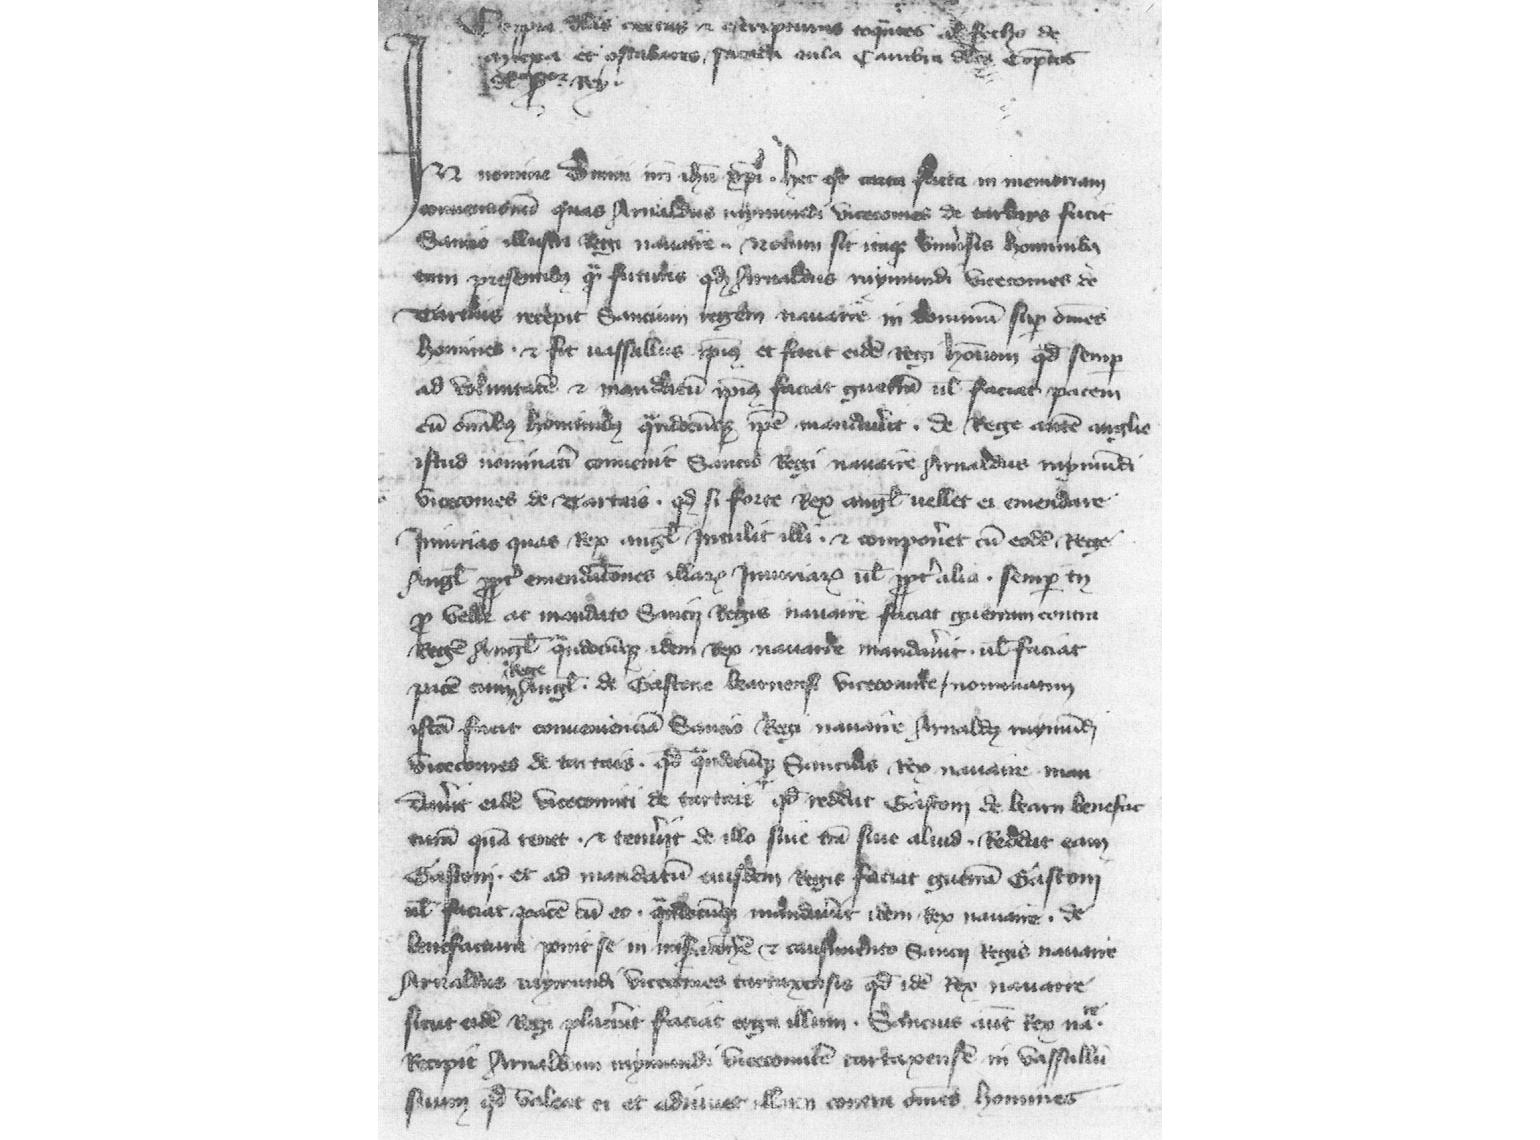 Coppia dellas cartas et escripturas toquantes al fecho de
et ostabares, sacada en la Cambra de los Comptos
del Seynnor Rey.
IN nomine Domini nri ihu xpi. hec est carta facta in memoriam
conuencionum quas Arnaldus raymundi vicecomes de tartays facit
Sancio illustri Regi nauarre. Notum sit itaque vniuersis hominibus
tam presentibus quam futuris quod Arnaldus raymundi vicecomes de
Tartais recepit Sancium regem nauarre in dominum super omnes
homines. et fit uassallus ipius et facit eidem Regi hominium quod semper
ad voluntatem et mandatum ipius faciat guerram uel faciat pacem
cum omnibus hominibus quandocumque ipse mandauerit. de Rege autem anglie
istud nominatim conuenit Sancio Regi nauarre Arnaldus raymundi
vicecomes de Tartais. quod si forte Rex angl uellet ei emendare
Iniurias quas Rex angl Intulit illi. et componeret cum eodem Rege
Angl propter emendationes illarum Iniuriarum uel propter alia. semper tamen
pro velle ac mandato Sancij Regis nauarre faciat guerram contra
Regem Angl quandocumque idem Rex nauarre mandauerit. uel faciat
pacem cum Rege Angl. de Gastone bearnensi vicecomite, nominatim
istam facit conuenienciam Sancio Regi nauarre Arnaldus raymundi
vicecomes de tartais. quod quandocumque Sancius Rex nauarre man
dauerit eidem vicecomiti de tartais quod reddat Gastoni de bearn benefac
turam quam tenet. et tenuerit de illo siue terram siue aliud. Reddat eam
Gastoni. et ad mandatum eiusdem Regis faciat guerram Gastoni
uel faciat pacem cum eo. quandocumque mandauerit idem Rex nauarre. de
benefactura ponit se in misericordiam et causimento Sancij Regis nauarre
Arnaldus raymundi vicecomes tartaxensis quod idem Rex nauarre
sicut eidem Regi placuerit faciat erga illum. Sancius autem Rex nare.
Recipit Arnaldum raymundi vicecomitem tartaxensem in vassallum
suum quod valeat ei et adiuuet illum contra omnes homines